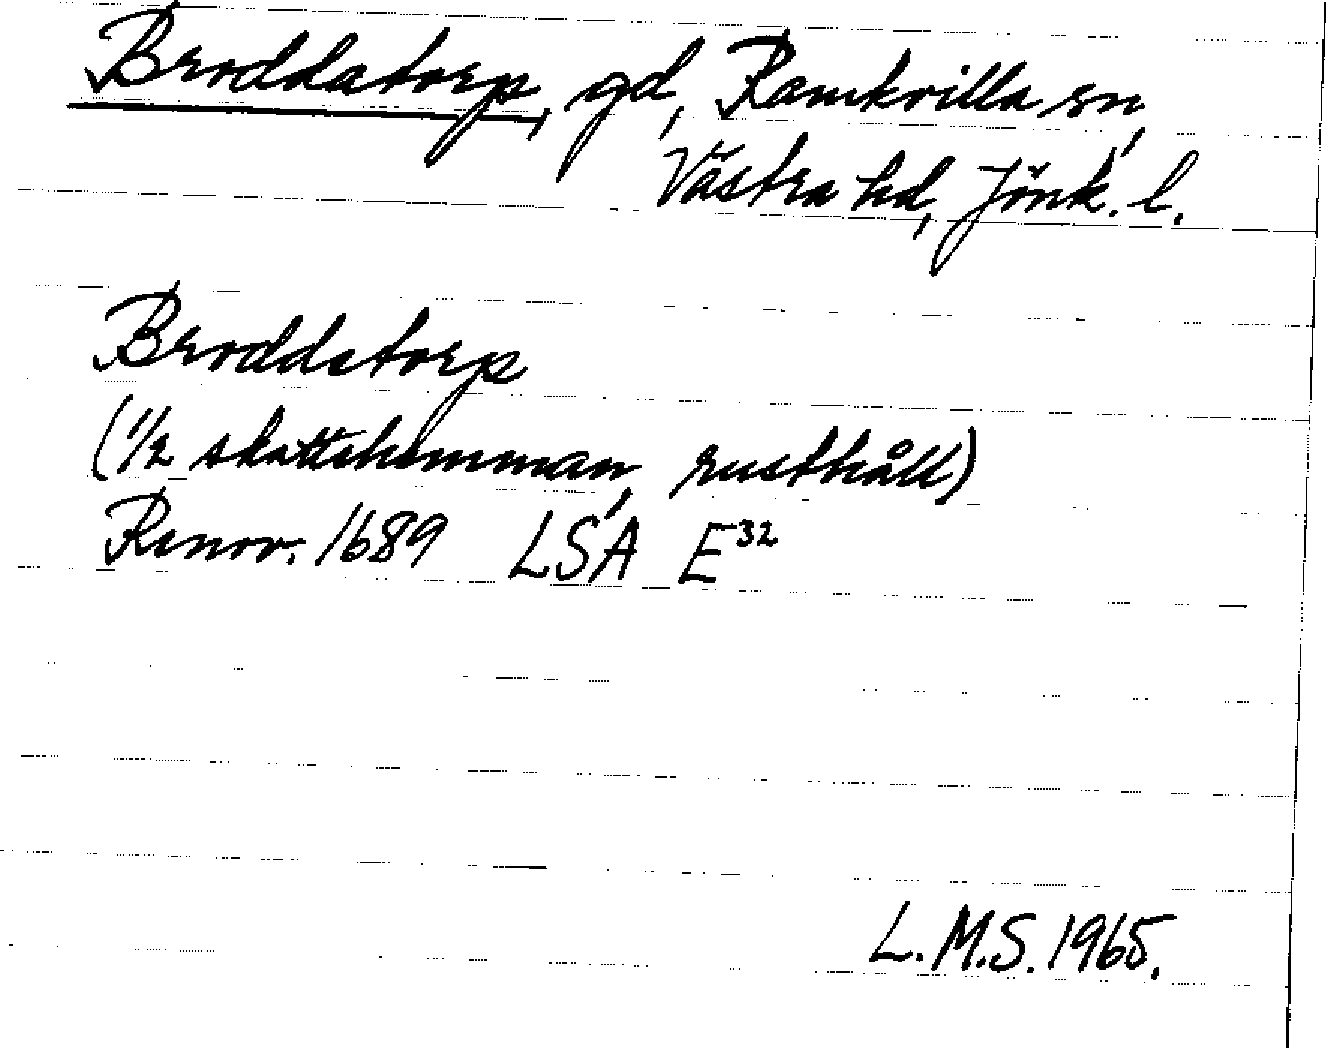 Broddatorp, gd, Ramkvilla sn,
Västra hd, Jönk. l.
Broddetorp
(1/2 skattehemman, rusthåll)
Renov. 1689 LSA E³²
L.M.S. 1965.